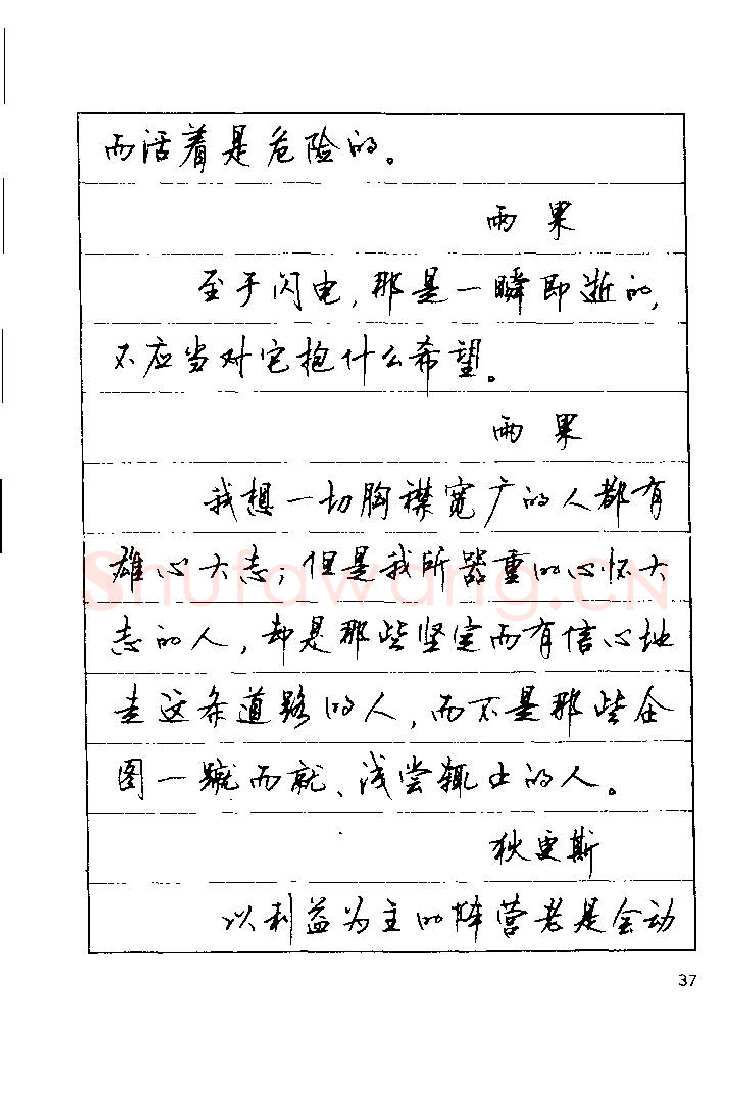 而活着是危险的。
雨果
至于闪电，那是一瞬即逝的，
不应当对它抱什么希望。
雨果
我想一切胸襟宽广的人都有
雄心大志，但是我所器重的心怀大
志的人，却是那些坚定而有信心地
走这条道路的人，而不是那些企
图一蹴而就、浅尝辄止的人。
狄更斯
以利益为主的阵营老是会动
37
Shufawang.CN